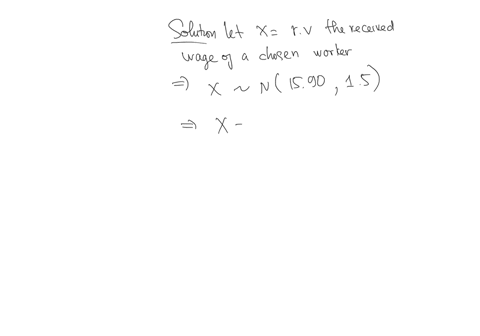 Solution let X = r.v the received
wage of a chosen worker
⇒ X ~ N(15.90, 1.5)
⇒ X -